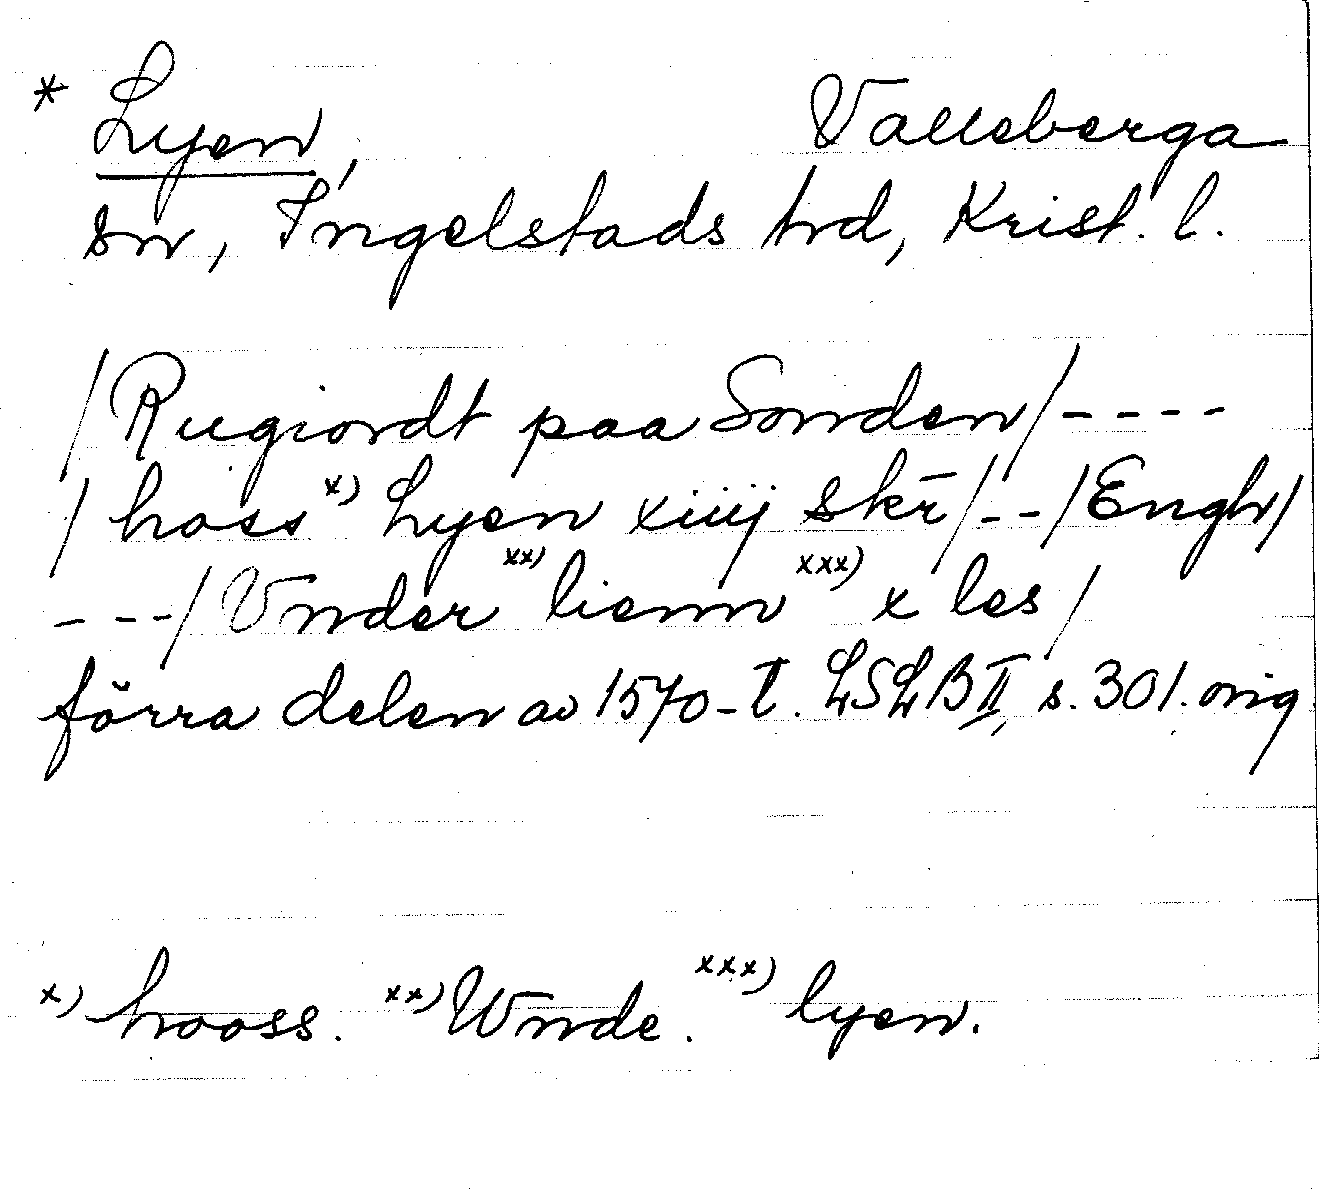 * Lyen, Valleberga
sn, Ingelstads hrd, Krist. l.
/Rugiordt paa Sonden/----
/hoss x) Lyen xiiij skr̄/--/Engh/
---/Vnder xx) lienn xxx) x les/
förra delen av 1570-t. LSLB II, s. 301. orig.
x) hooss. xx) Wnde. xxx) lyen.